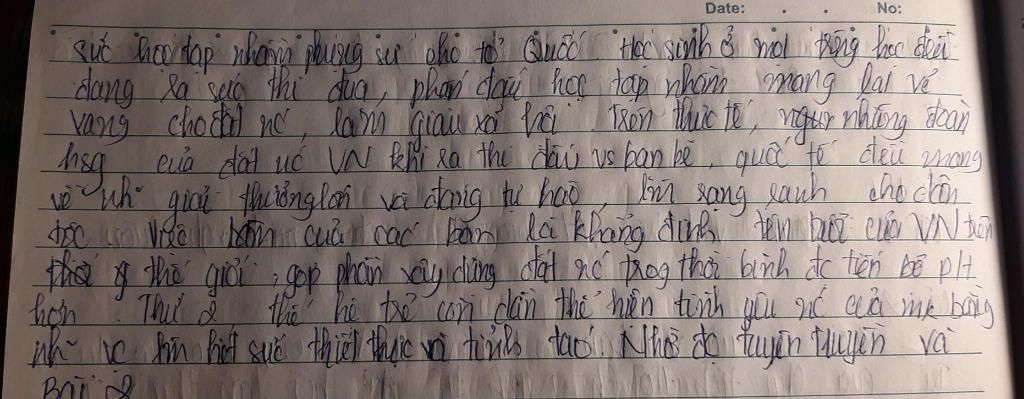 Date: . . No:
sức học tập nhằm phụng sự cho tổ Quốc. Học sinh ở mọi trường học đều
đang ra sức thi đua, phấn đấu học tập nhằm mang lại vẻ
vang cho đất nc, làm giàu xã hội. Trên thực tế, ngay những đoàn
hsg của đất nc VN khi ra thi đấu vs bạn bè, quốc tế đều mang
về nh giải thưởng lớn và đáng tự hào, làm rạng xanh cho dân
tộc. Việc làm của các bạn là khẳng định tên tuổi của VN trên
thế giới, góp phần xây dựng đất nc trog thời bình đc tiến bộ pt
hơn. Thứ 2 thế hệ trẻ còn dần thể hiện tình yêu nc của mk bằng
nh vc làm hết sức thiết thực và tỉnh táo. Nhờ đc tuyên truyền và
Bài 2